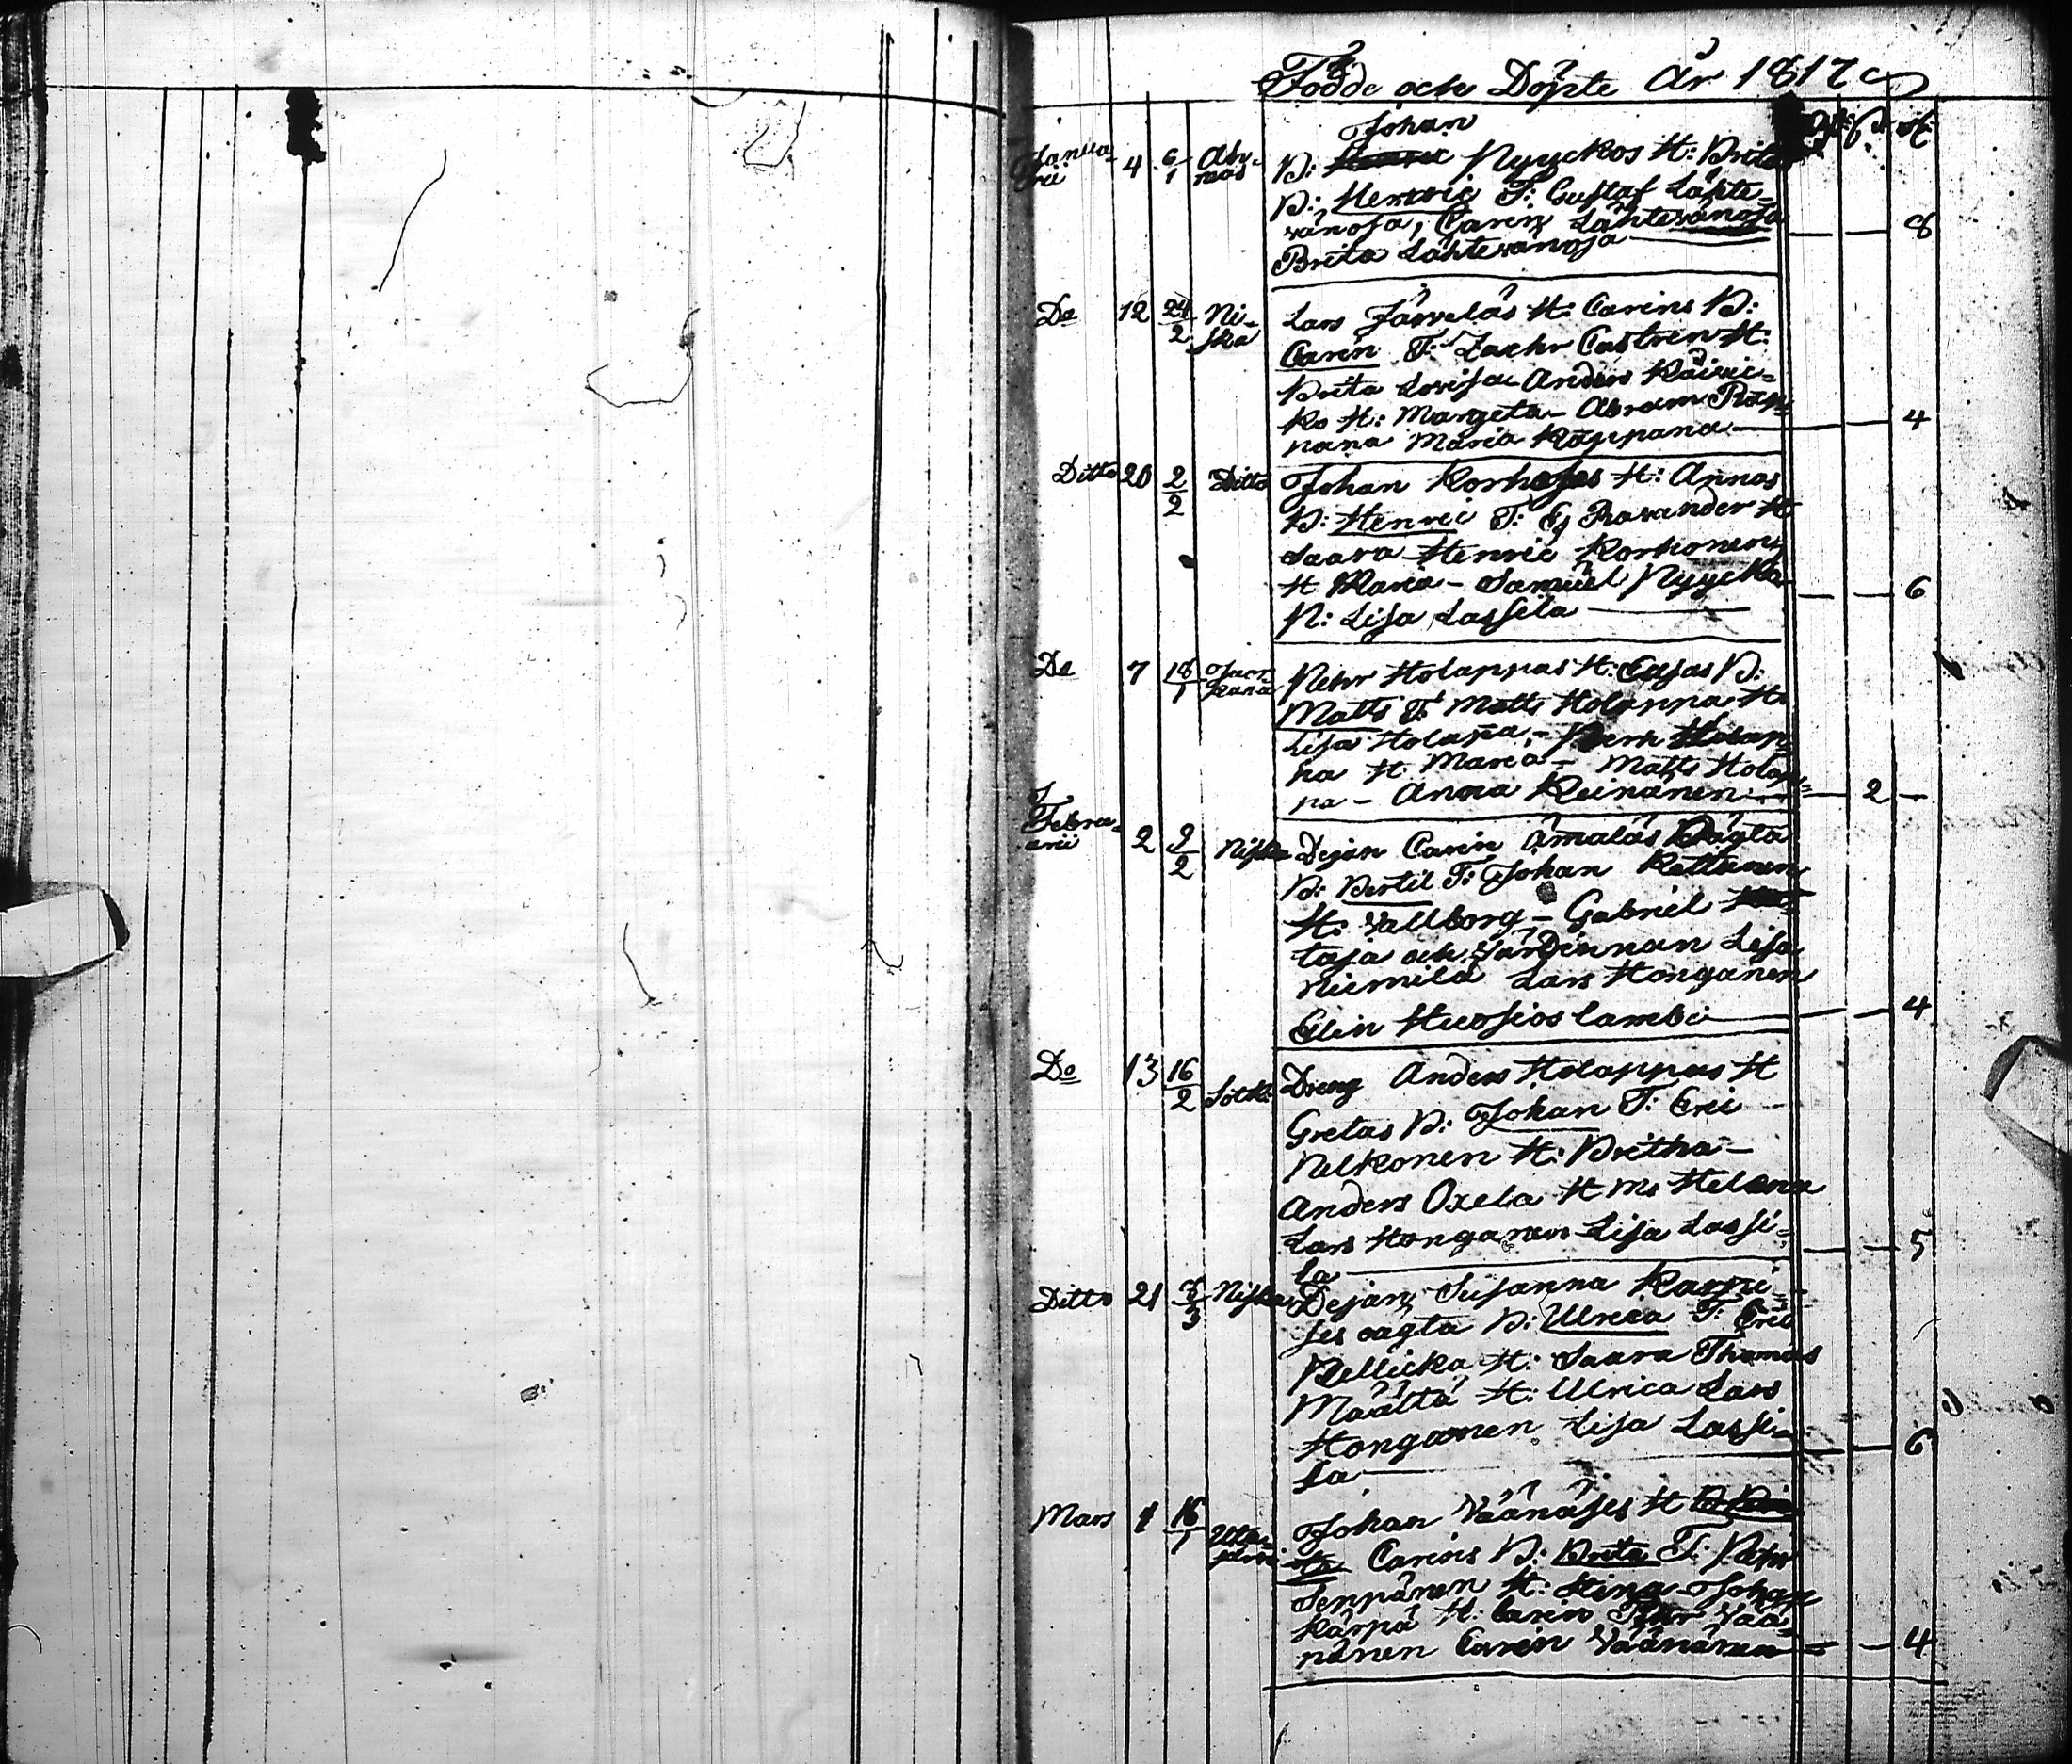 Födde och Döpte År 1817
Johan
Januarii 4 6/1 Ahmas B: Nyyckos H: Brita
B: Henric F: Gustaf Lähte-
vänoja, Carin Lähtevänoja
Brita Lähtevänoja — — 8
Do 12 24/2 Niska Lars Järveläs H: Carins B:
Carin F: Zachr Castren H:
Brita Lovisa Anders Räiic-
ko H: Margeta - Abram Rap-
pana Maria Rappana — — 4
Ditto 20 2/2 Ditto Johan Korhoses H: Annas
B: Henric F: Ej Ravander H
Saara Henric Korhonen
H Maria - Samuel Nyycka
P: Lisa Lassila — — 6
Do 7 18/1 Pehr Holappas H: Casas B:
Matts F: Matts Holappa H:
Lisa Holapa, - Holap-
pa H Maria - Matts Holap-
pa - Anna Keinänen — 2 —
Februarii 2 9/2 Niska Dejan Carin Ämäläs Oägta
B: Bertil F: Johan Kettunen
H: Vallborg - Gabriel
taja och Värdinnan Lisa
Niemilä Lars Honganen
Elin Huosioslambi — — 4
Do 13 16/2 Sotk: Dreng Anders Holappas H
Gretas B: Johan F: Eric
Pelkonen H: Britha -
Anders Oxela H M: Helena
Lars Honganen Lisa Lassi- — — 5
la
Ditto 21 3/3 Niska Dejan Susanna Karpi-
ses oägta B: Ulrica F: Eric
Pellicka H: Saara Thomas
Määttä H: Ulrica Lars
Honganen Lisa Lassi- — — 6
la
Mars 1 16/1 Utajärvi Johan Väänäses H
Carins B: Brita F: Pehr
Seppänen H: Stina Johan
Kärpä H: Carin Pehr Vää-
nänen Carin Väänänen — — 4